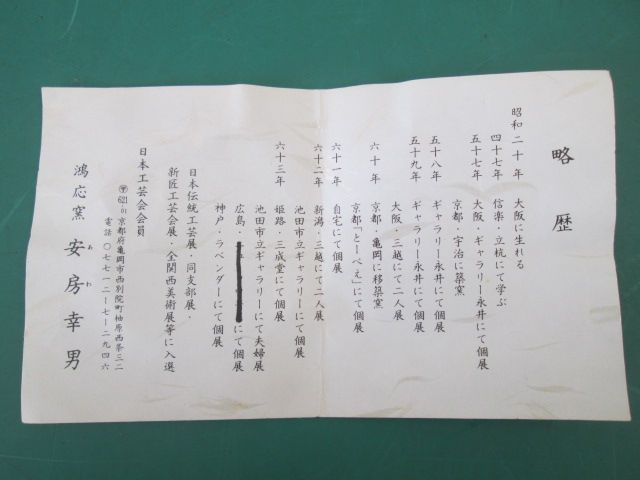 略歴
昭和二十年 大阪に生れる
四十七年 信楽・立杭にて学ぶ
五十七年 大阪・ギャラリー永井にて個展
京都・宇治に築窯
五十八年 ギャラリー永井にて個展
五十九年 ギャラリー永井にて個展
大阪・三越にて二人展
六十年 京都・亀岡に移築窯
京都「とーべえ」にて個展
六十一年 自宅にて個展
六十二年 新潟・三越にて二人展
池田市立ギャラリーにて個展
六十三年 姫路・三成堂にて個展
池田市立ギャラリーにて夫婦展
広島・にて個展
神戸・ラベンダーにて個展
日本伝統工芸展・同支部展・
新匠工芸会展・全関西美術展等に入選
日本工芸会会員
〒621-01京都府亀岡市西別院町柚原西条三二
電話〇七七一二ー七ー二九四六
鴻応窯 安房幸男
あわ